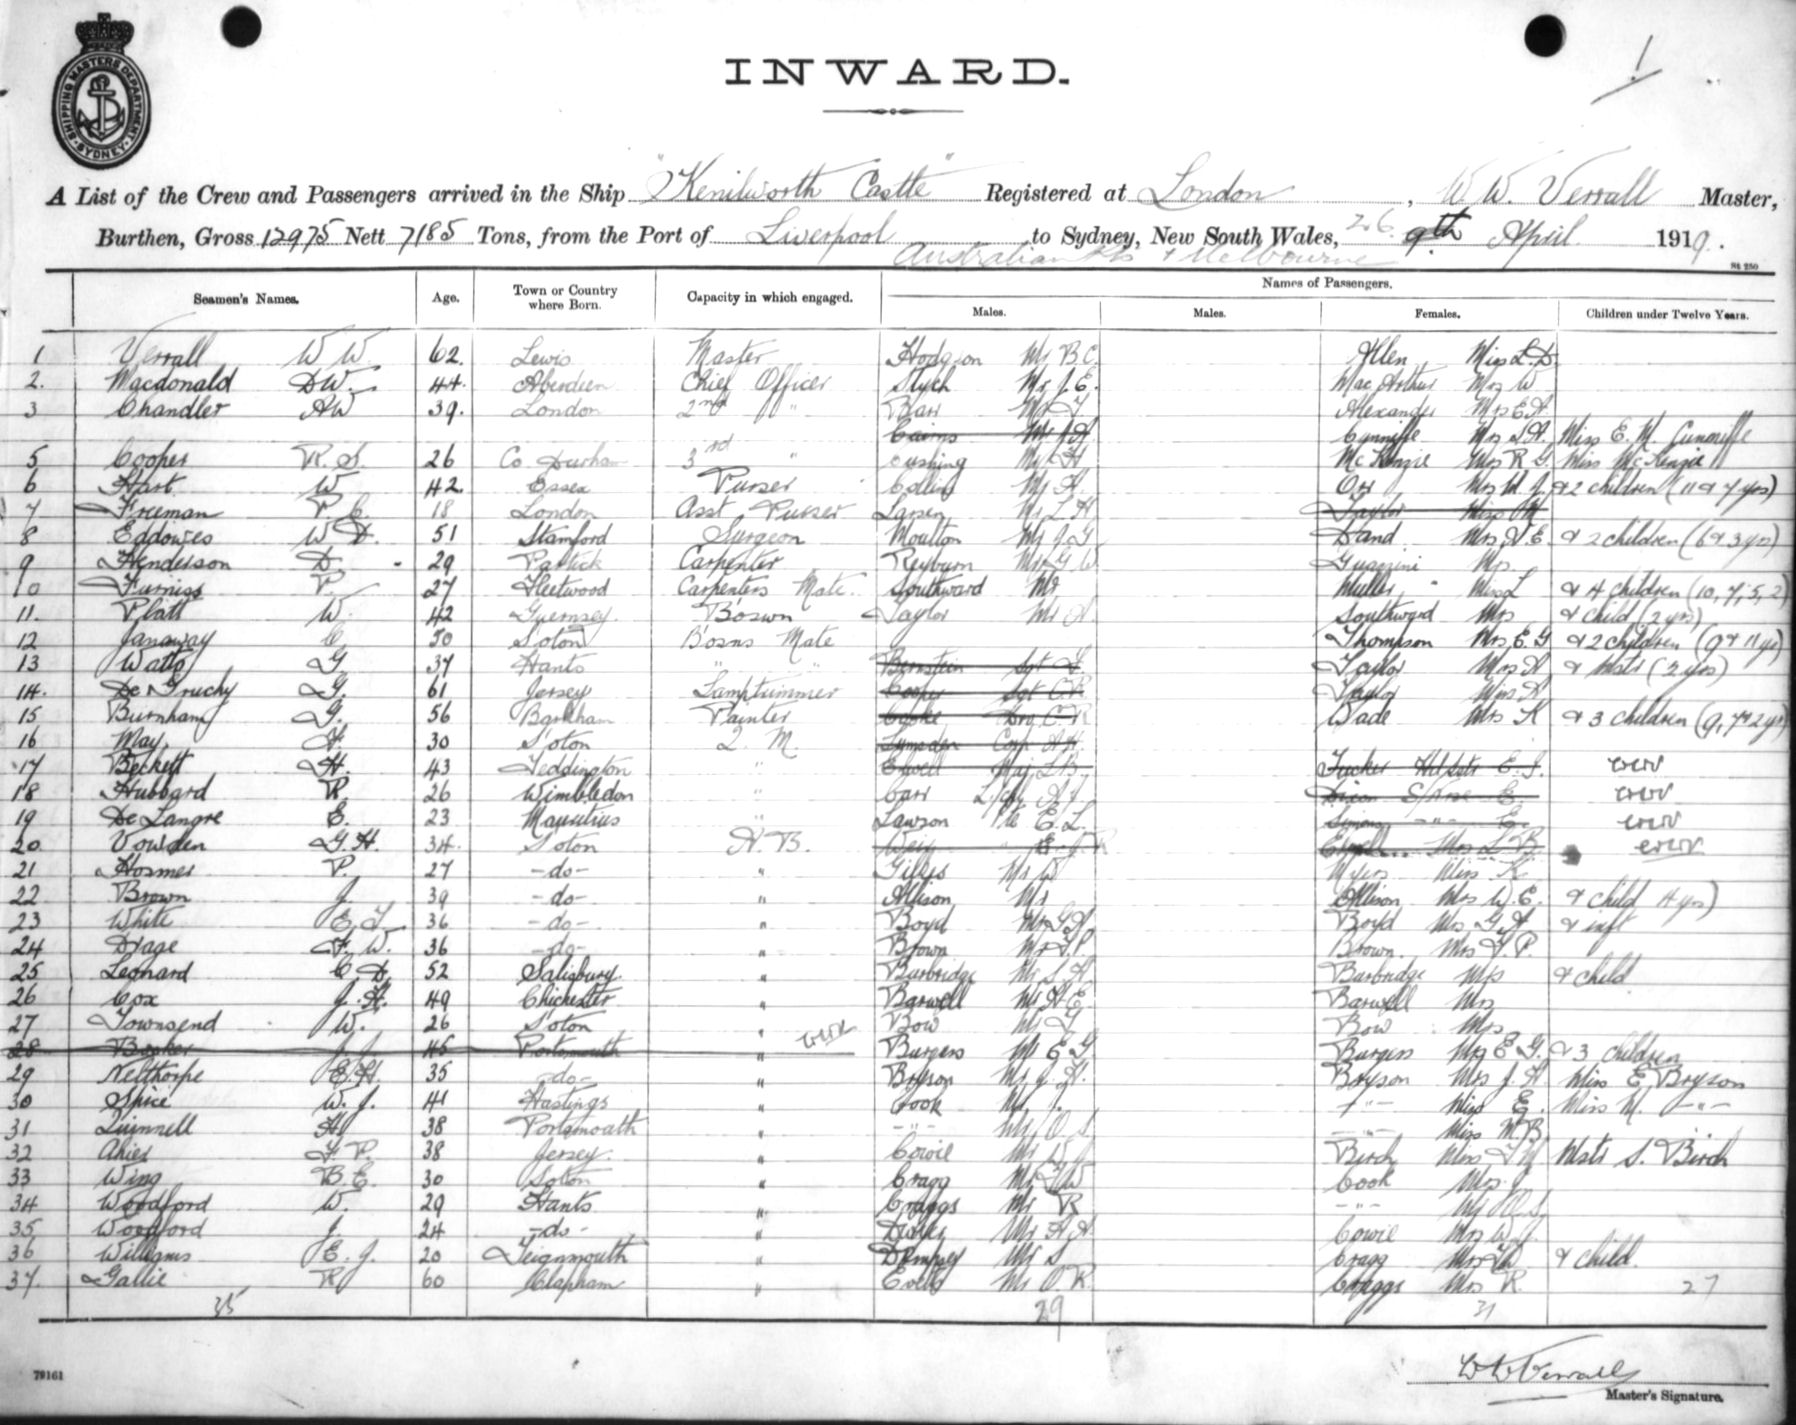 SHIPPING MASTERS DEPARTMENT
SYDNEY
INWARD.
1
A List of the Crew and Passengers arrived in the Ship "Kenilworth Castle" Registered at London, W. W. Verrall Master,
Burthen, Gross 12975 Nett 7185 Tons, from the Port of Liverpool to Sydney, New South Wales, 26 9th April 1919.
Australian Pts & Melbourne
St 250
Seamen's Names. Age. Town or Country where Born. Capacity in which engaged. Names of Passengers.
Males. Males. Females. Children under Twelve Years.
1 Verrall W W 62. Lewis Master Hodgson Mr B C. Allen Miss L. D.
2. Macdonald D W. 44. Aberdeen Chief Officer Stych Mr J. E. Mac Arthur Mrs W
3 Chandler A W 39. London 2nd " Barr Mr Alexander Mrs E A.
Cairns Mr Cunniffe Mrs S A. Miss E. M. Cunniffe
5 Cooper R. S. 26 Co Durham 3rd " Cushing Mr H McKenzie Mrs R G. Miss McKenzie
6 Hart W 42. Essex Purser Colling Mr A. Orr Mrs M J. & 2 children (11 & 7 yrs)
7 Freeman P C. 18 London Asst Purser Larsen Mr L. H Taylor Miss M
8 Eddowes W D. 51 Stamford Surgeon Moulton Mr J G Dand Mrs A E. & 2 children (6 & 3 yrs)
9 Henderson D. 29 Partick Carpenter Reyburn Mr G W. Guazzini Mrs.
10 Furniss P. 27 Fleetwood Carpenters Mate. Southward Mr Muller Miss L & 4 children (10, 7, 5, 2)
11. Platt W. 42 Guernsey Bo'swn Taylor Mr A. Southward Mrs & child (2 yrs)
12 Janaway C 50 S'oton Bosns Mate Thompson Mrs. E. G & 2 children (9 & 11 yrs)
13 Watts G 37 Hants " " Bernstein Sgt Taylor Mrs A & Mstr (2 yrs)
14. De Gruchy G. 61 Jersey Lamptrimmer Cooper Sgt C. R Taylor Miss A
15 Burnham G. 56 Barkham Painter Cooke C R Wade Mrs K & 3 children (9, 7 & 2 yrs)
16 May. H. 30 S'oton Q. M. Lumsden Corp A H.
17 Beckett H. 43 Teddington " Elwell Maj L B. Tucker E. J. crew
18 Hubbard R. 26 Wimbledon " Carr L/Cpl A J. Dixon S/Nrse E. crew
19 De Langre E. 23 Mauritius " Lawson Pte E. L. Simons - " - crew
20. Vowden G. H. 34. S'oton A. B. Weir E. J. R Elwell Mrs L B crew
21 Hosmer P. 27 -do- " Gilles Mr W Myers Miss K
22 Brown J. 39 -do- " Allison Mr Allison Mrs W. E. & child 4 yrs)
23 White E. T. 36 -do- " Boyd Mr G A. Boyd Mrs G A & inft
24 Drage F. W. 36 -do- " Brown Mr T. P. Brown. Mrs T. P.
25 Leonard C. D. 52 Salisbury. " Burbridge Mr S. A Burbridge Mrs & child
26 Cox J. H. 49 Chichester " Barwell Mr A E. Barwell Mrs
27 Townsend W. 26 S'oton " Bow Mr Bow Mrs
28 Booker J J. 45 Portsmouth " crew Burgess Mr E G. Burgess Mrs E G. & 3 children
29 Nelthorpe E. H. 35 -do- " Bryson Mr J. A. Bryson Mrs J. A Miss E Bryson
30 Spice W. J. 41 Hastings " Cook Mr J. - " - Miss E. Miss M. - " -
31 Quinnell A 38 Portsmouth " - " - Mr O S - " - Miss M. B
32 Ahier F P. 38 Jersey. " Cowie Mr W J Birch Miss Mstr S. Birch
33 Wing B. E. 30 Soton " Cragg Mr T W Cook Mrs. J
34 Woodford W. 29 Hants " Craggs Mr R - " - O S.
35 Woodford J. 24 -do- " Mr A A. Cowie Mrs W J.
36 Williams E. J. 20 Teignmouth " Dempsey Mr S Cragg Mrs T W & child.
37. Gallie R 60 Clapham " Mr O. R. Craggs Mrs R. 27
35 29 31
W W Verrall
79161 Master's Signature.